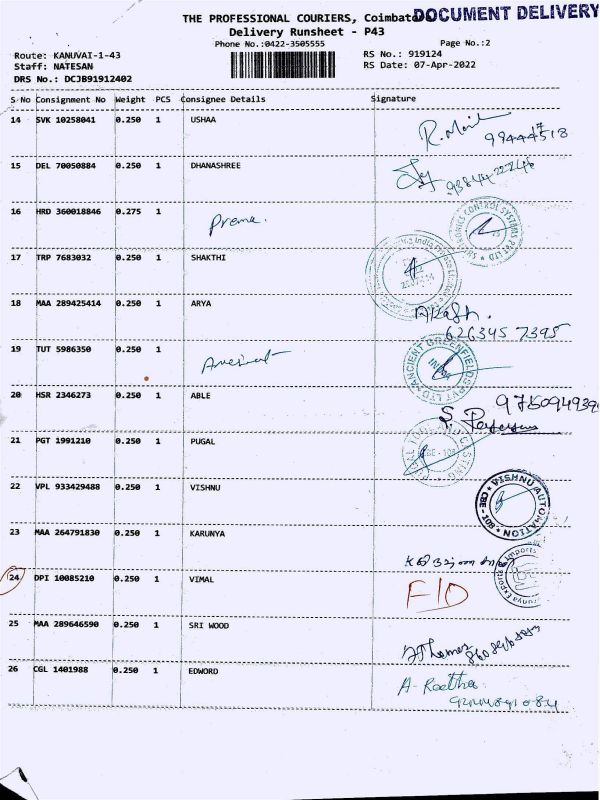 THE PROFESSIONAL COURIERS, Coimbato
DOCUMENT DELIVERY
Delivery Runsheet - P43
Phone No.:0422-3505555
Page No.:2
Route: KANUVAI-1-43
RS No.: 919124
Staff: NATESAN
RS Date: 07-Apr-2022
DRS No.: DCJB91912402
S No Consignment No Weight PCS Consignee Details Signature
14 SVK 10258041 0.250 1 USHAA
15 DEL 70050884 0.250 1 DHANASHREE
16 HRD 360018846 0.275 1 Prema.
17 TRP 7683032 0.250 1 SHAKTHI
18 MAA 289425414 0.250 1 ARYA
Akash.
626345 7395
19 TUT 5986350 0.250 1
ANCIENT GREENFIELDS PVT LTD
INDIA
20 HSR 2346273 0.250 1 ABLE
S.
21 PGT 1991210 0.250 1 PUGAL
22 VPL 933429488 0.250 1 VISHNU
VISHNU AUTOMATION
CBE - 108
23 MAA 264791830 0.250 1 KARUNYA
24 DPI 10085210 0.250 1 VIMAL
F/D
25 MAA 289646590 0.250 1 SRI WOOD
26 CGL 1401988 0.250 1 EDWORD